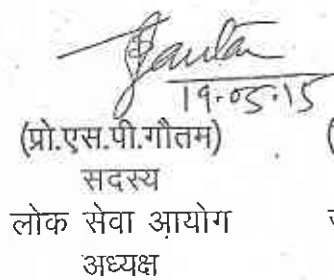 Gautam
19-05-15
(प्रो.एस.पी.गौतम)
सदस्य
लोक सेवा आयोग
अध्यक्ष